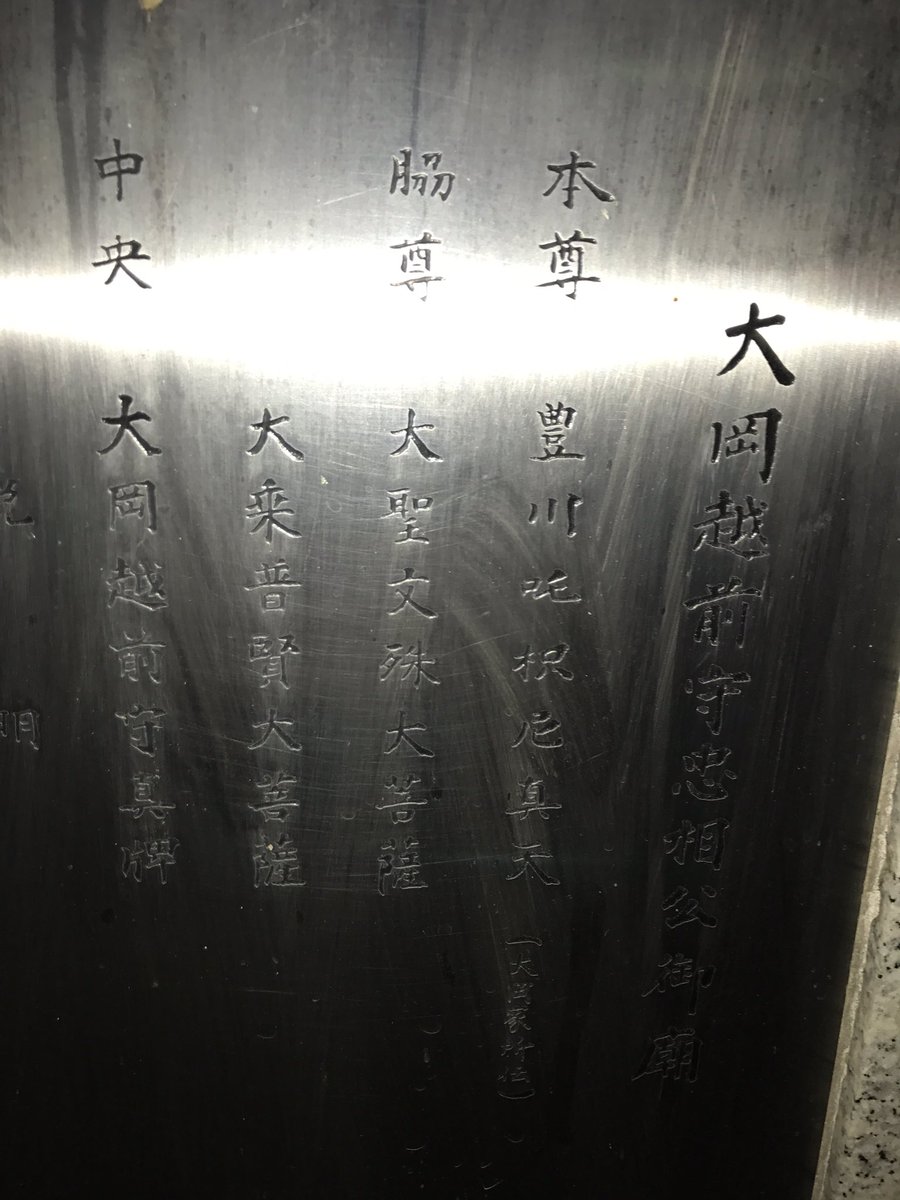 大岡越前守忠相公御廟
本尊 豊川吒枳尼真天 (大岡家
脇尊 大聖文殊大菩薩
大乗普賢大菩薩
中央 大岡越前守真牌
門